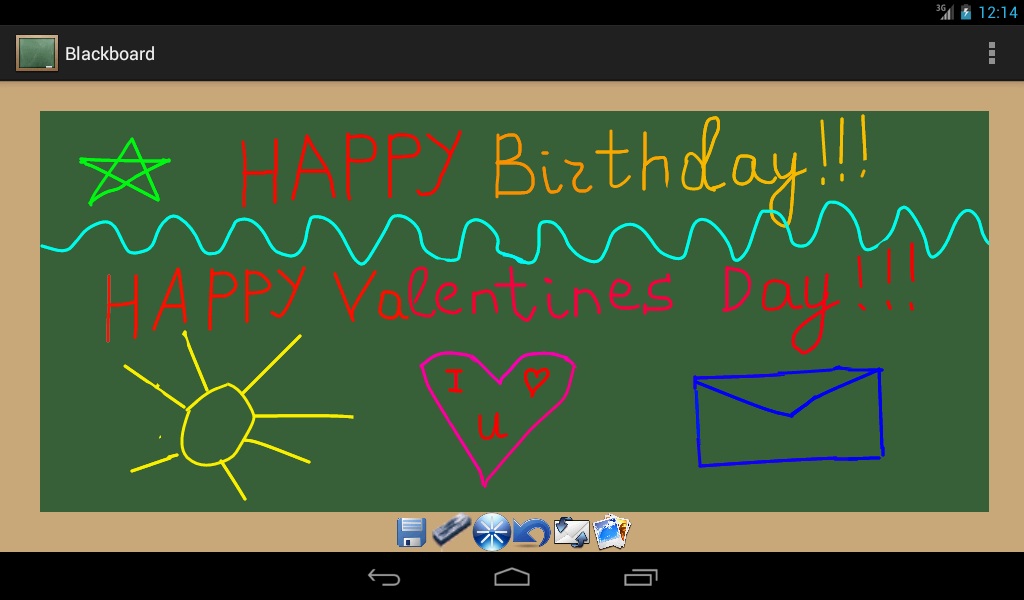 3G 12:14
Blackboard
HAPPY Birthday!!!
HAPPY Valentines Day!!!
I ♡
U